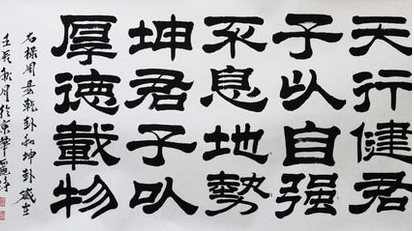 天行健君
子以自强
不息地勢
坤君子以
厚德載物
右録周易乾卦和坤卦
月於京華